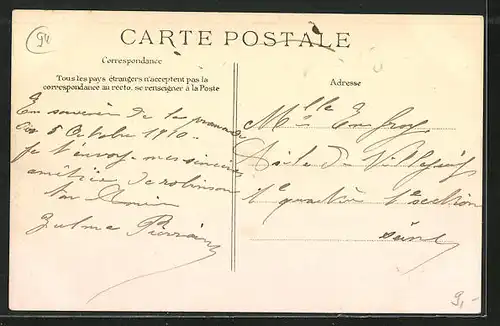 94
CARTE POSTALE
Correspondance
Tous les pays étrangers n'acceptent pas la
correspondance au recto, se renseigner à la Poste
Adresse
En souvenir de la promenade
du 5 Octobre 1910.
je t'envoy mes sincères
amitiés de robinson
ton
Zulma
Mlle
Asile de Villejuif
1e quartier 1e section
Seine
9,-